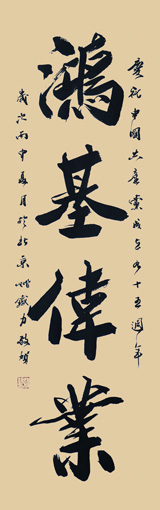 慶祝中國共產黨成立九十五週年
鴻基偉業
歲次丙申夏月於北京 力敬賀